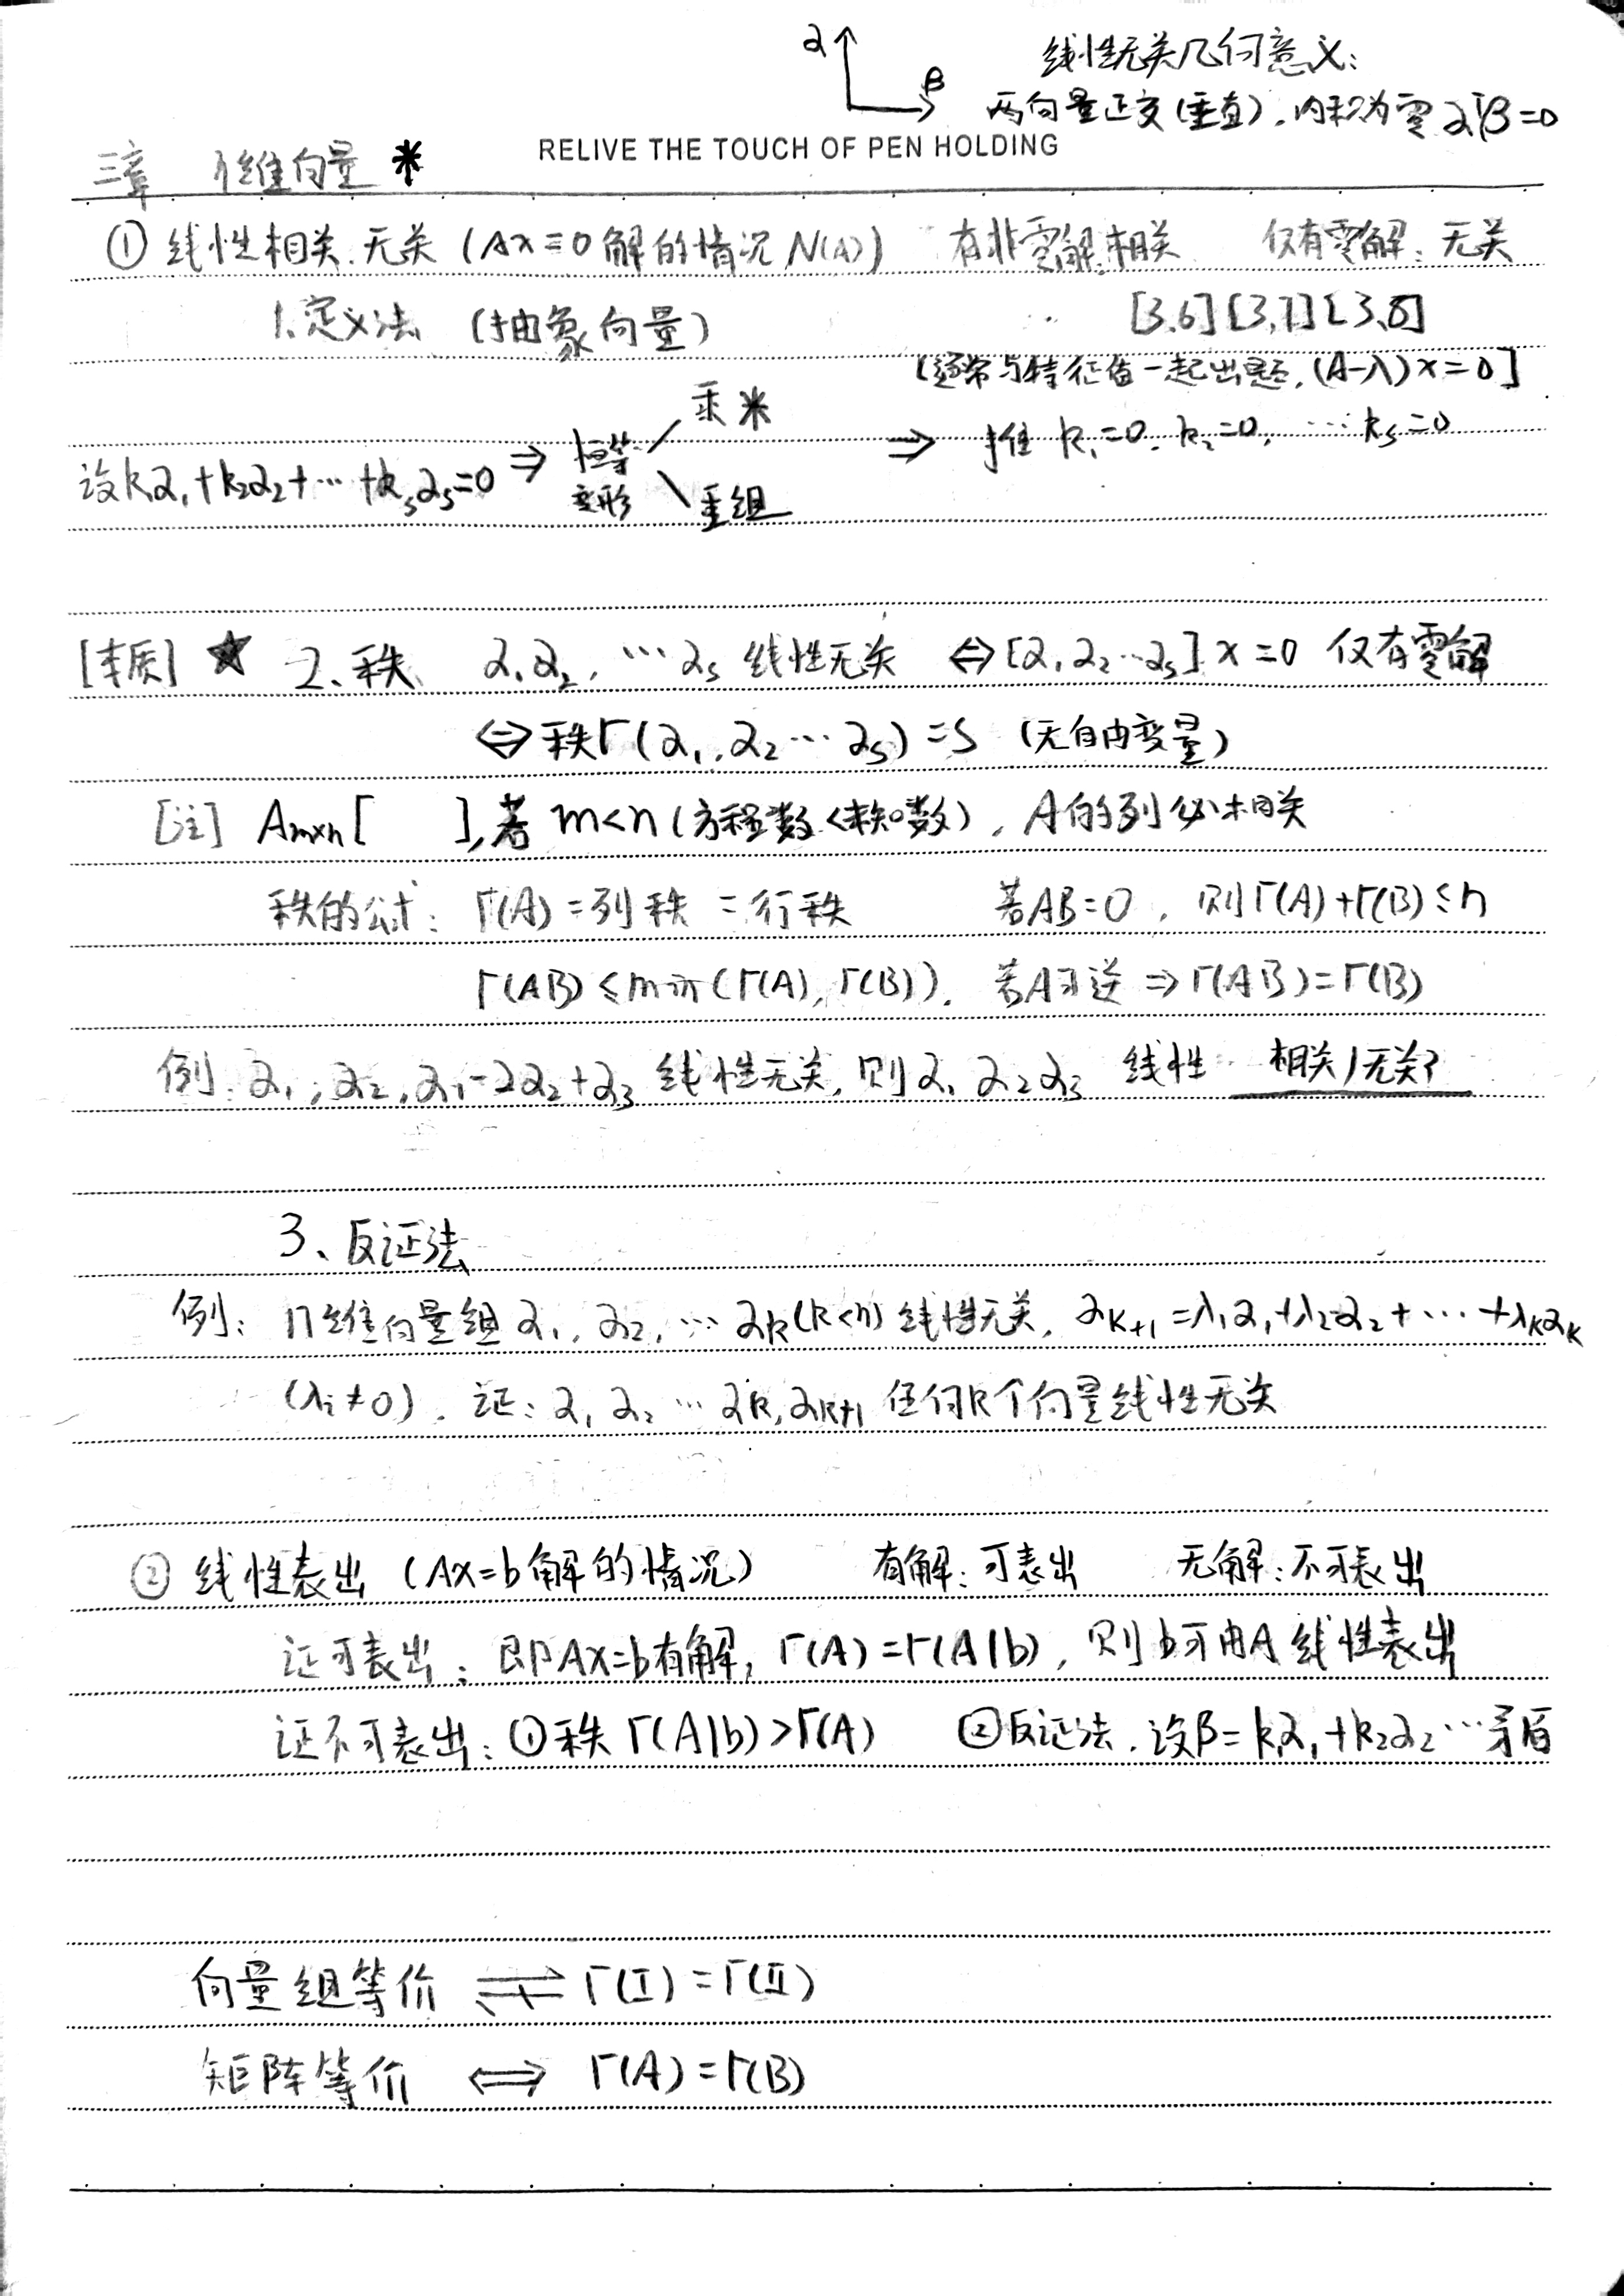 α β 线性无关几何意义:
两向量正交(垂直), 内积为零 αᵀβ=0
RELIVE THE TOUCH OF PEN HOLDING
三章 n维向量 *
① 线性相关.无关 (Ax=0解的情况 N(A)) 有非零解:相关 仅有零解:无关
1.定义法 (抽象向量) [3.6][3.7][3.8]
[通常与特征值一起出题, (A-λ)x=0]
乘
设k₁α₁+k₂α₂+…+kₛαₛ=0 ⇒ 恒等变形 ⇒ 推 k₁=0, k₂=0, …kₛ=0
重组
[本质] ★ 2.秩 α₁α₂, …αₛ 线性无关 ⇔ [α₁α₂…αₛ]x=0 仅有零解
⇔ 秩r(α₁,α₂…αₛ)=s (无自由变量)
[注] Aₘₓₙ[ ],若 m<n(方程数<未知数), A的列必相关
秩的公式: r(A)=列秩=行秩 若AB=0, 则r(A)+r(B)≤n
r(AB)≤min(r(A),r(B)). 若A可逆⇒r(AB)=r(B)
例: α₁,α₂,α₁-2α₂+α₃ 线性无关,则α₁α₂α₃ 线性 相关/无关?
3、反证法
例: n维向量组α₁,α₂,…αₖ(k<n)线性无关, αₖ₊₁=λ₁α₁+λ₂α₂+…+λₖαₖ
(λᵢ≠0). 证: α₁α₂…αₖ,αₖ₊₁ 任何k个向量线性无关
② 线性表出 (Ax=b解的情况) 有解:可表出 无解:不可表出
证可表出: 即Ax=b有解, r(A)=r(A|b), 则b可由A线性表出
证不可表出: ①秩 r(A|b)>r(A) ②反证法.设β=k₁α₁+k₂α₂…矛盾
向量组等价 ⇌ r(Ⅰ)=r(Ⅱ)
矩阵等价 ⇔ r(A)=r(B)